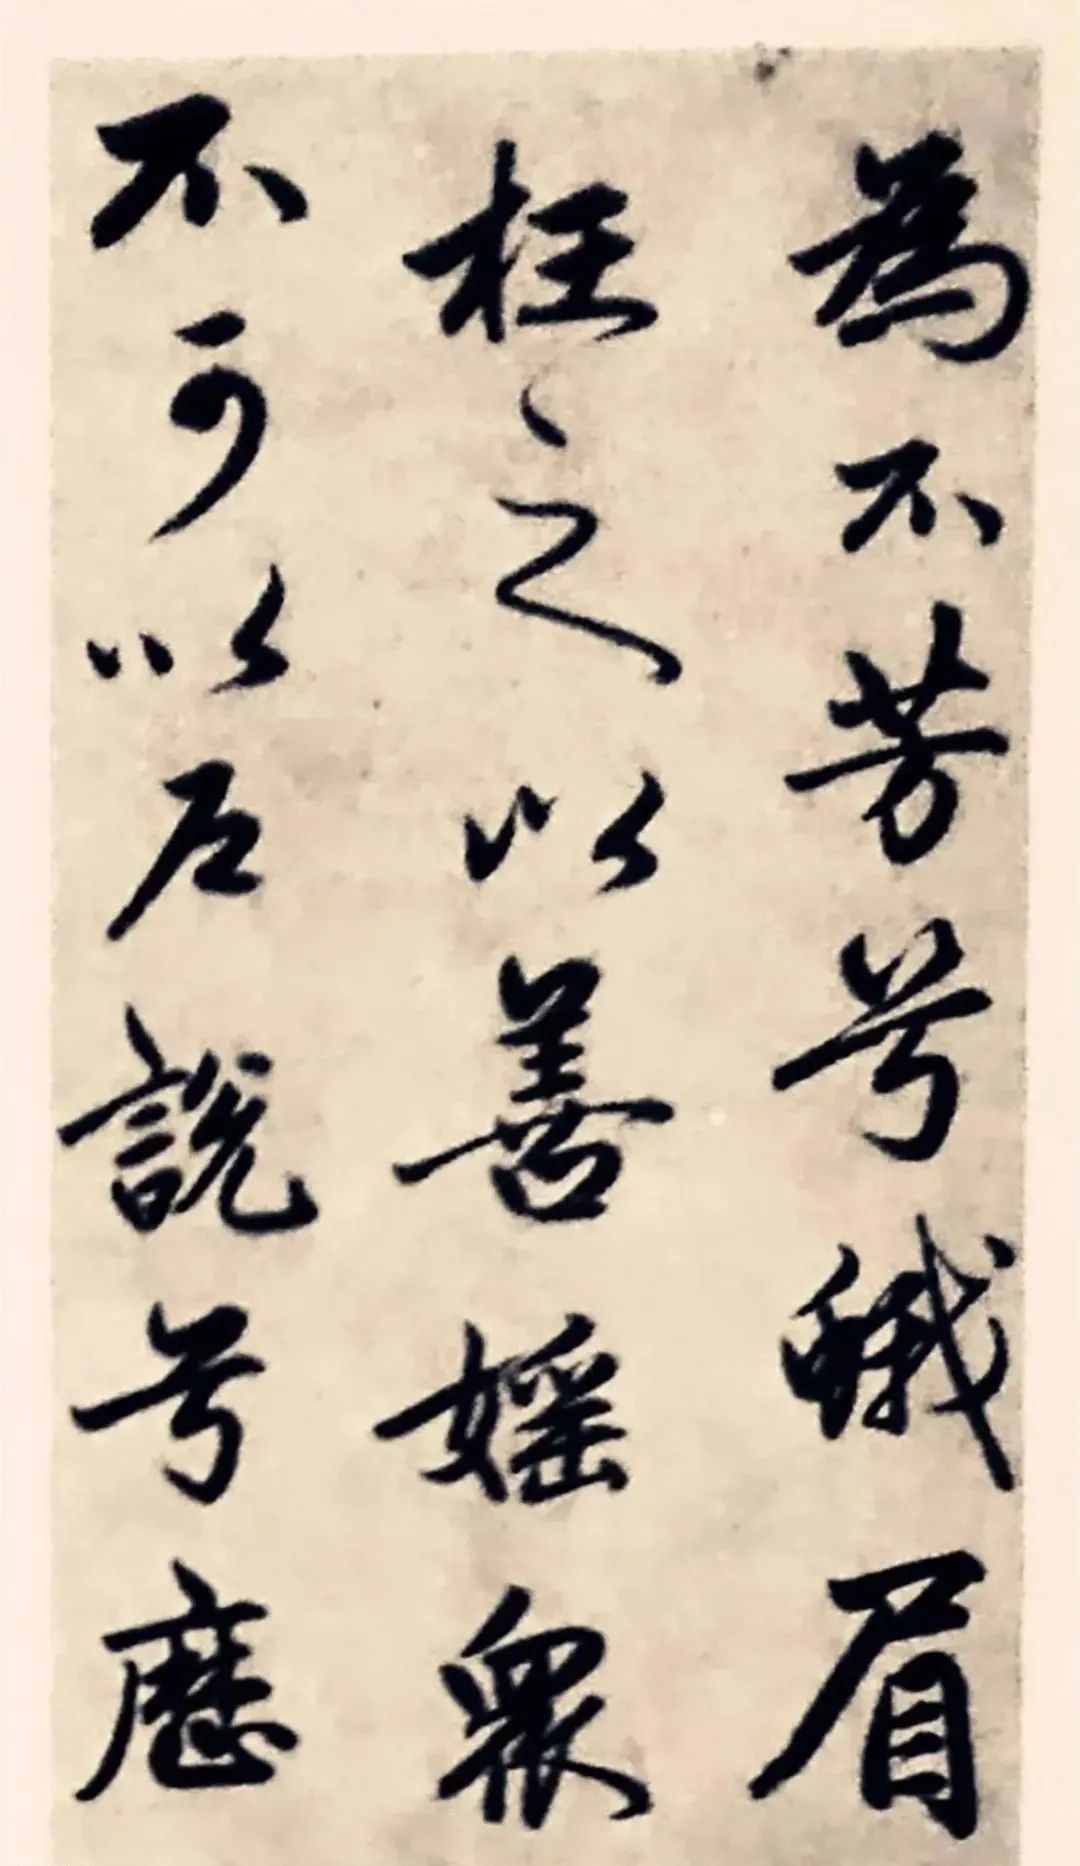 為不芳兮蛾眉
枉之以善媱衆
不可以戶說兮